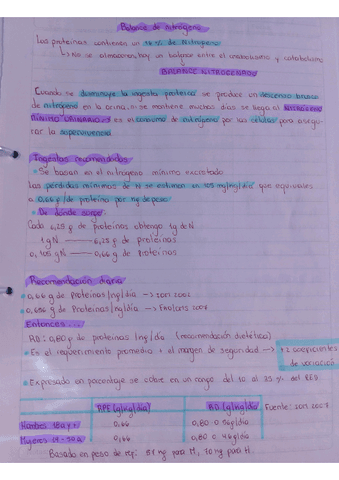 Balance de nitrógeno
Las proteínas contienen un 16% de Nitrógeno
↳ No se almacenan, hay un balance entre el anabolismo y catabolismo
BALANCE NITROGENADO
Cuando se disminuye la ingesta proteica se produce un descenso brusco
de nitrógeno en la orina, si se mantiene muchos días se llega al NITRÓGENO
MÍNIMO URINARIO → es el consumo de nitrógeno por las células para asegu-
rar la supervivencia
Ingestas recomendadas
Se basan en el nitrógeno mínimo excretado
Las pérdidas mínimas de N se estiman en 105 mg/Kg/día que equivalen
a 0,66 g de proteína por Kg de peso
De dónde surge
Cada 6,25 g de proteínas obtengo 1g de N
1 g N —— 6,25 g de proteínas
0,105 g N —— 0,66 g de proteínas
Recomendación diaria
0,66 g de Proteínas/Kg/día → IOM 2002
0,656 g de Proteínas/Kg/día → FAO/OMS 2007
Entonces...
RD: 0,80 g de proteínas/Kg/día (recomendación dietética)
Es el requerimiento promedio + el margen de seguridad → + 2 coeficientes
de variación
Expresado en porcentaje se cubre en un rango del 10 al 35% del
RPE (g/Kg/día) RD (g/Kg/día) Fuente: IOM 2002
Hombres 0,66 0,80 o 56 g/día
Mujeres 0,66 0,80 o 46 g/día
Basado en peso de ref: 57 Kg para M, 70 Kg para H.